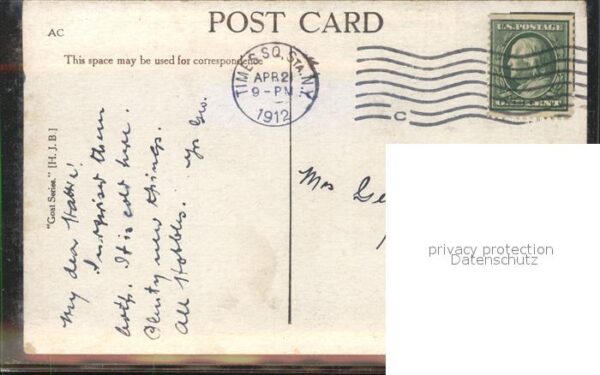 POST CARD
AC
This space may be used for correspondence
TIMES SQ. STA. N.Y.
APR 21
9-PM
1912
C
U.S. POSTAGE
ONE CENT
"Goat Series." [H. J. B.]
My dear Hattie!
them
both. It is cold here.
Plenty new things.
All Hobbles. Yr Geo.
Mrs Ge
privacy protection
Datenschutz